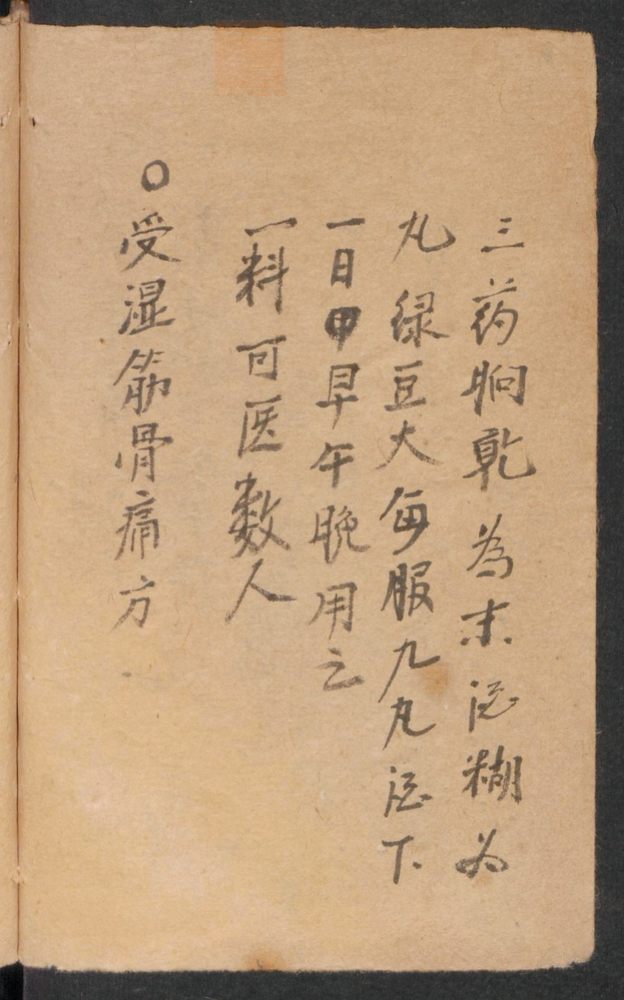 三药晌乾為末酒糊为
丸绿豆大每服九丸酒下
一日甲早午晚用之
一料可医数人
○受湿筋骨痛方